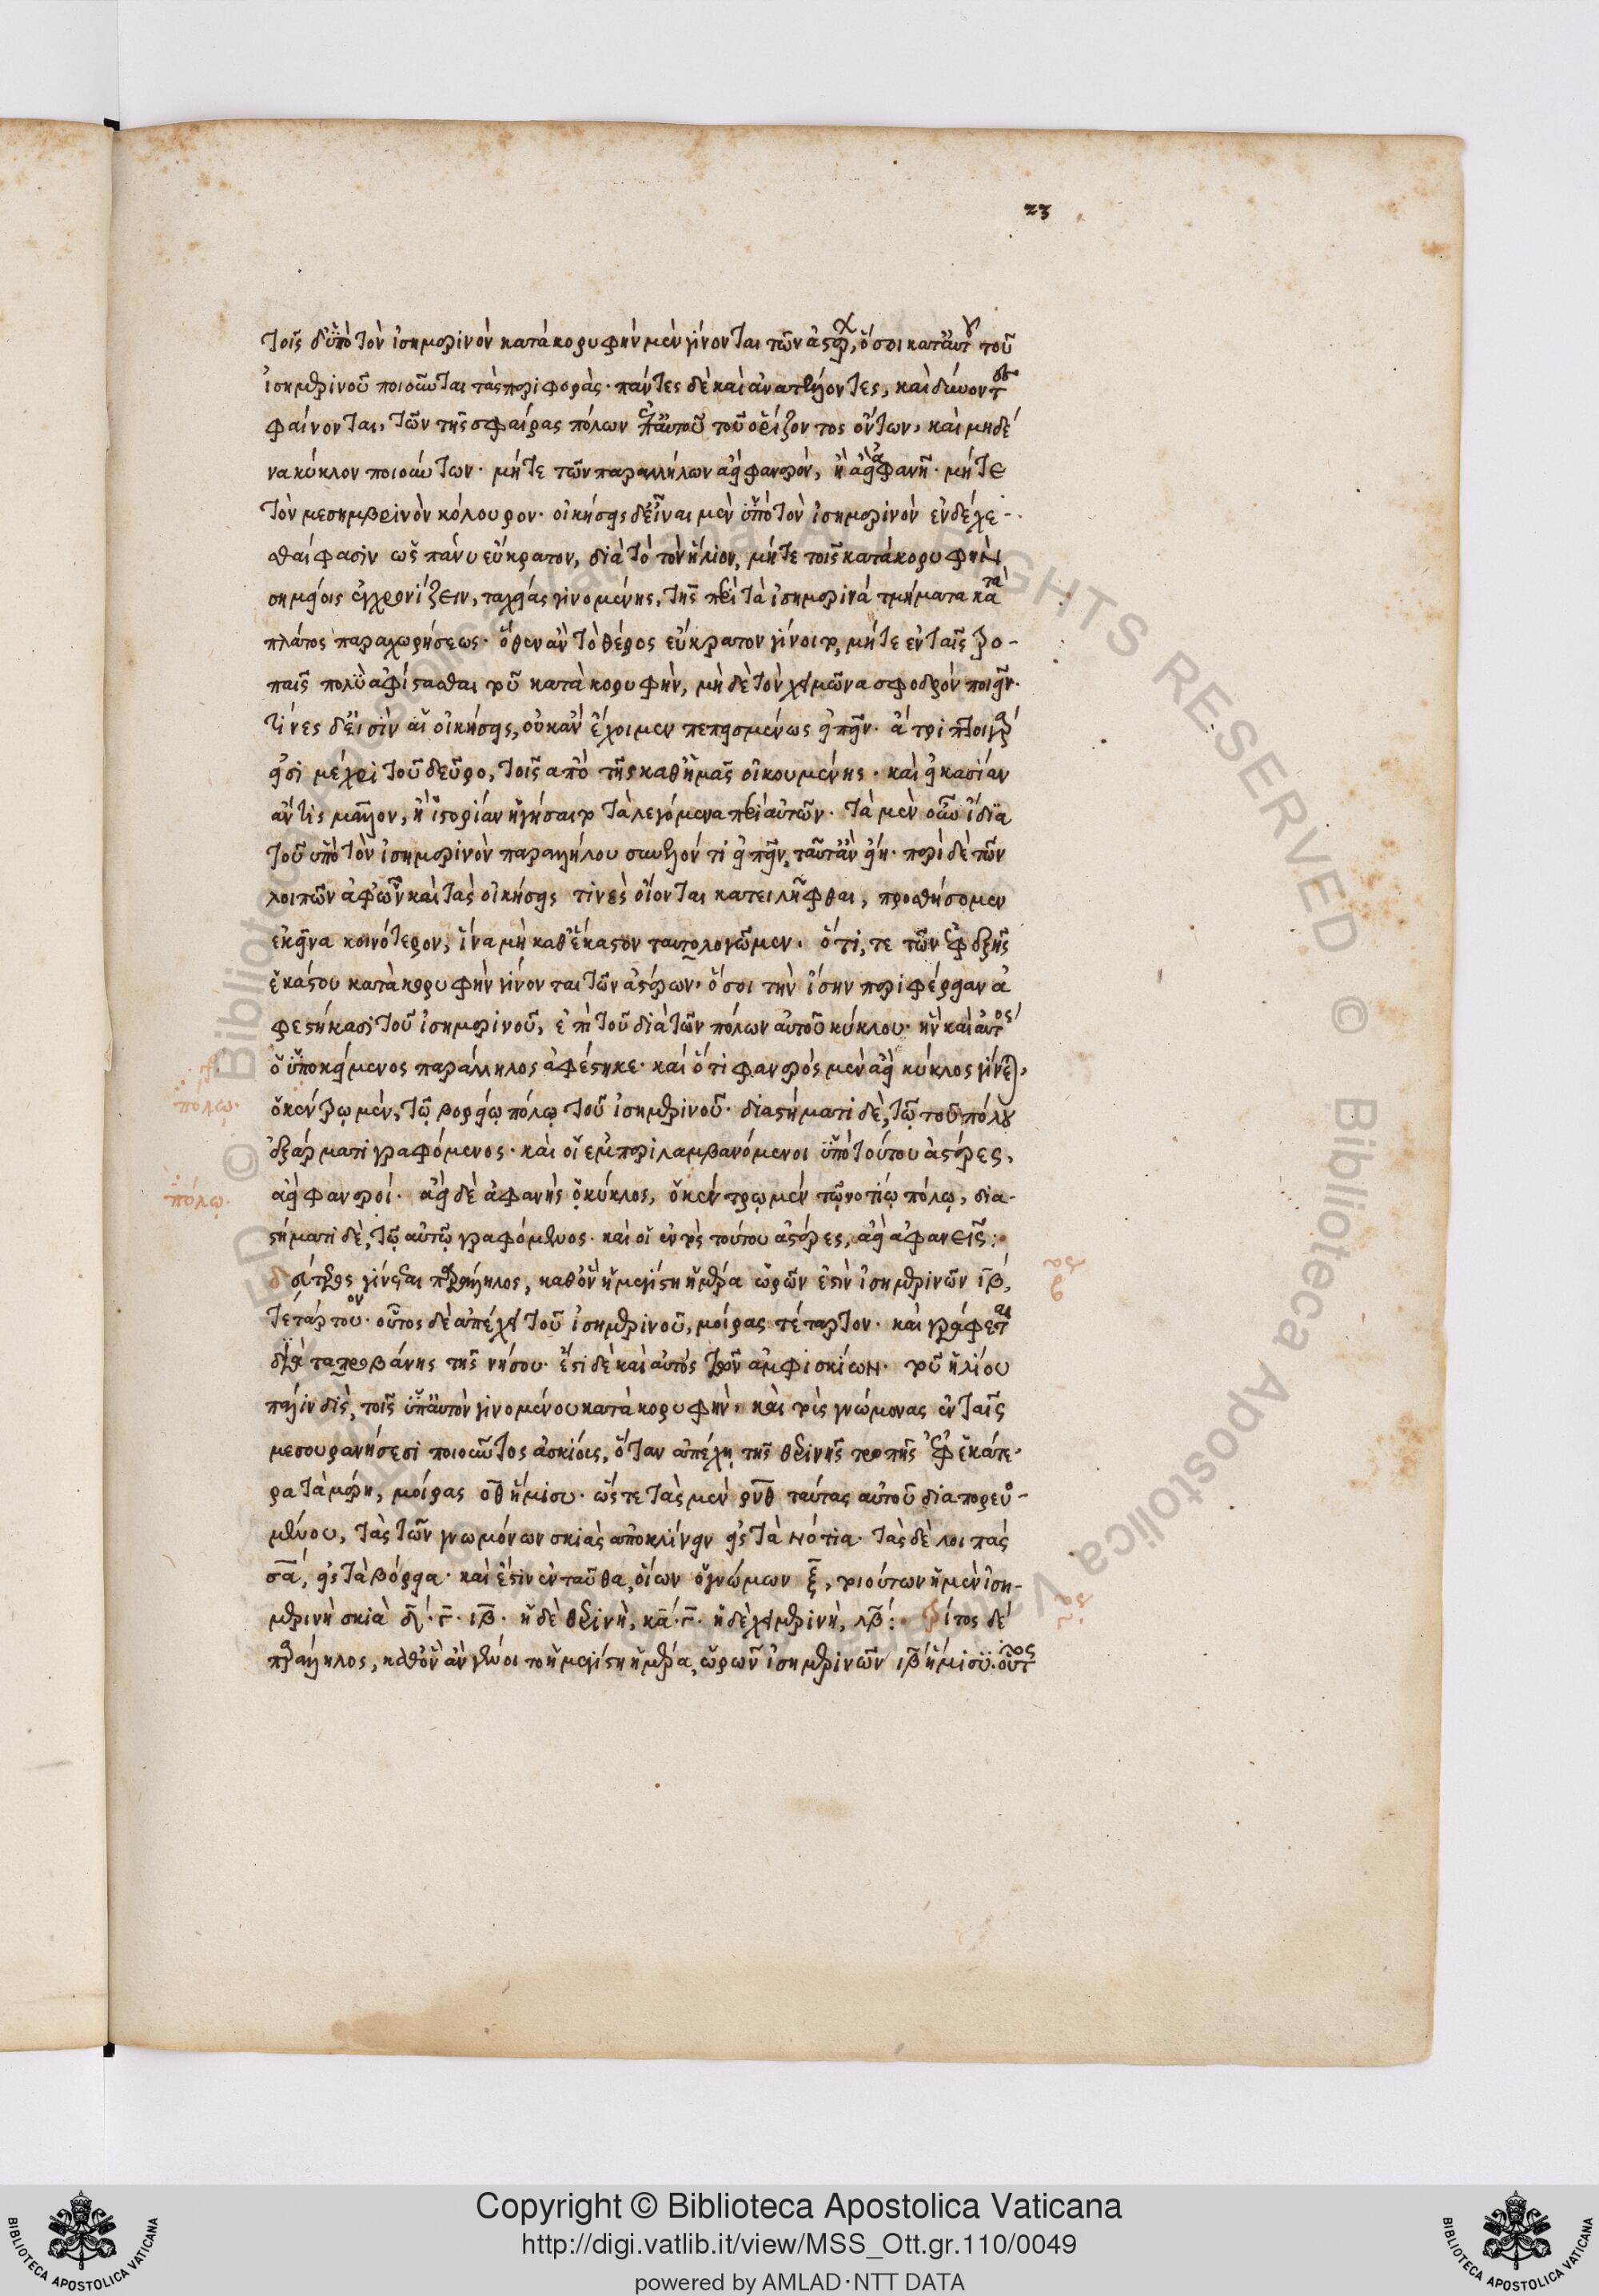 23
τοῖς δ' ὑπὸ τὸν ἰσημερινὸν κατὰ κορυφὴν μὲν γίνονται τῶν ἀστέρων, ὅσοι κατ' αὐτοῦ τοῦ
ἰσημερινοῦ ποιοῦνται τὰς περιφοράς· πάντες δὲ καὶ ἀνατέλλοντες, καὶ δύνοντες
φαίνονται, τῶν τῆς σφαίρας πόλων ἐπ' αὐτοῦ τοῦ ὁρίζοντος ὄντων, καὶ μηδέ
να κύκλον ποιούντων· μήτε τῶν παραλλήλων ἀεὶ φανερὸν, ἢ ἀεὶ ἀφανῆ· μήτε
τὸν μεσημβρινὸν κόλουρον· οἰκήσεις δ' εἶναι μὲν ὑπὸ τὸν ἰσημερινὸν ἐνδέχε-
σθαί φασιν ὡς πάνυ εὔκρατον, διὰ τὸ τὸν ἥλιον, μήτε τοῖς κατὰ κορυφὴν
σημείοις ἐγχρονίζειν, ταχείας γινομένης, τῆς περὶ τὰ ἰσημερινὰ τμήματα κατὰ
πλάτος παραχωρήσεως· ὅθεν ἂν τὸ θέρος εὔκρατον γίνοιτο, μήτε ἐν ταῖς τρο-
παῖς πολὺ ἀφίστασθαι τοῦ κατὰ κορυφὴν, μὴ δὲ τὸν χειμῶνα σφοδρὸν ποιεῖν·
τίνες δ' εἰσὶν αἱ οἰκήσεις, οὐκ ἂν ἔχοιμεν πεπεισμένως εἰπεῖν· ἄτριπτοι γάρ
εἰσι μέχρι τοῦ δεῦρο, τοῖς ἀπὸ τῆς καθ' ἡμᾶς οἰκουμένης· καὶ εἰκασίαν
ἄν τις μᾶλλον, ἢ ἱστορίαν ἡγήσαιτο τὰ λεγόμενα περὶ αὐτῶν· τὰ μὲν οὖν ἴδια
τοῦ ὑπὸ τὸν ἰσημερινὸν παραλλήλου συνελόντι εἰπεῖν, ταῦτ' ἂν εἴη· περὶ δὲ τῶν
λοιπῶν ἀφ' ὧν καὶ τὰς οἰκήσεις τινὲς οἴονται κατειλῆφθαι, προσθήσομεν
ἐκεῖνα κοινότερον, ἵνα μὴ καθ' ἕκαστον ταυτολογῶμεν· ὅτι, τε τῶν ἐφεξῆς
ἑκάστου κατὰ κορυφὴν γίνονται τῶν ἀστέρων, ὅσοι τὴν ἴσην περιφέρειαν ἀ
φεστήκασι τοῦ ἰσημερινοῦ, ἐπὶ τοῦ διὰ τῶν πόλων αὐτοῦ κύκλου· ἣν καὶ αὐτὸς
ὁ ὑποκείμενος παράλληλος ἀφέστηκε· καὶ ὅτι φανερὸς μὲν ἀεὶ κύκλος γίνεται,
πόλῳ·
ὁ κέντρῳ μὲν, τῷ βορείῳ πόλῳ τοῦ ἰσημερινοῦ· διαστήματι δὲ, τῷ τοῦ πόλου
ἐξάρματι γραφόμενος· καὶ οἱ ἐμπεριλαμβανόμενοι ὑπὸ τούτου ἀστέρες,
πόλῳ·
ἀεὶ φανεροί· ἀεὶ δὲ ἀφανὴς ὁ κύκλος, ὁ κέντρῳ μὲν τῷ νοτίῳ πόλῳ, δια-
στήματι δὲ, τῷ αὐτῷ γραφόμενος· καὶ οἱ ἐντὸς τούτου ἀστέρες, ἀεὶ ἀφανεῖς:
δεύτερός γίνεται παράλληλος, καθ' ὃν ἡ μεγίστη ἡμέρα ὡρῶν ἐστὶν ἰσημερινῶν ιβ,
τετάρτου· οὗτος δὲ ἀπέχει τοῦ ἰσημερινοῦ, μοίρας τέταρτον· καὶ γράφεται
διὰ ταπροβάνης τῆς νήσου· ἔστι δὲ καὶ αὐτὸς τῶν ἀμφισκίων· τοῦ ἡλίου
πάλιν δὶς, τοῖς ὑπ' αὐτὸν γινομένου κατὰ κορυφὴν, καὶ τοὺς γνώμονας ἐν ταῖς
μεσουρανήσεσι ποιοῦντος ἀσκίους, ὅταν ἀπέχῃ τῆς θερινῆς τροπῆς ἐφ' ἑκάτε-
ρα τὰ μέρη, μοίρας οθ ἥμισυ· ὥστε τὰς μὲν ρνθ ταύτας αὐτοῦ διαπορευο-
μένου, τὰς τῶν γνωμόνων σκιὰς ἀποκλίνειν εἰς τὰ νότια· τὰς δὲ λοιπάς
σα, εἰς τὰ βόρεια· καὶ ἔστιν ἐνταῦθα, οἵων ὁ γνώμων ξ, τοιούτων ἡ μὲν ἰση-
μερινὴ σκιὰ δ· γ· ιβ· ἡ δὲ θερινὴ, κα· γ· ἡ δὲ χειμερινὴ, λβ: τρίτος δέ
παράλληλος, καθ' ὃν ἂν γένοιτο ἡ μεγίστη ἡμέρα, ὡρῶν ἰσημερινῶν ιβ ἥμισυ· οὗτος
Copyright © Biblioteca Apostolica Vaticana
http://digi.vatlib.it/view/MSS_Ott.gr.110/0049
powered by AMLAD·NTT DATA
BIBLIOTECA APOSTOLICA VATICANA
BIBLIOTECA APOSTOLICA VATICANA